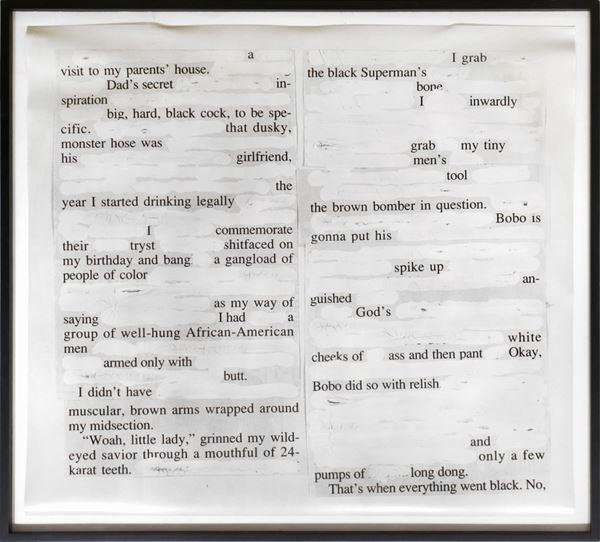 a
visit to my parents' house.
Dad's secret in-
spiration
big, hard, black cock, to be spe-
cific. that dusky,
monster hose was
his girlfriend,
the
year I started drinking legally
I commemorate
their tryst shitfaced on
my birthday and bang a gangload of
people of color
as my way of
saying I had a
group of well-hung African-American
men
armed only with
butt.
I didn't have
muscular, brown arms wrapped around
my midsection.
"Woah, little lady," grinned my wild-
eyed savior through a mouthful of 24-
karat teeth.
I grab
the black Superman's
bone
I inwardly
grab my tiny
men's
tool
the brown bomber in question.
Bobo is
gonna put his
spike up
an-
guished
God's
white
cheeks of ass and then pant Okay,
Bobo did so with relish
and
only a few
pumps of long dong.
That's when everything went black. No,